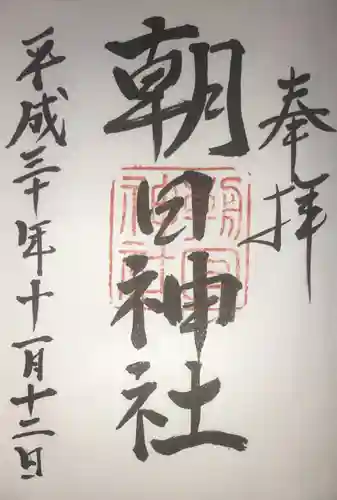 奉拝
朝日神社
平成三十年十一月十二日